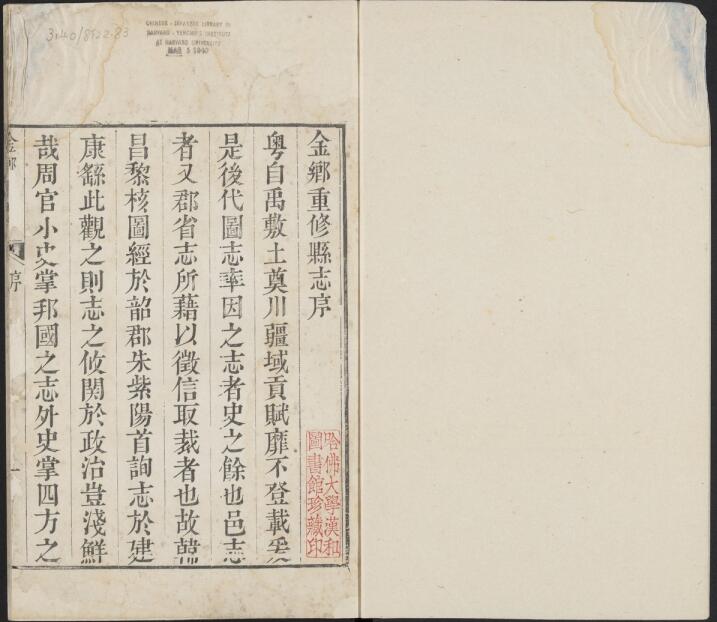 3140/8522.83
CHINESE - JAPANESE LIBRARY OF
HARVARD - YENCHING INSTITUTE
AT HARVARD UNIVERSITY
MAR 5 1940
金鄉重修縣志序
粵自禹敷土奠川疆域貢賦靡不登載爰
是後代圖志率因之志者史之餘也邑志
者又郡省志所藉以徵信取裁者也故韓
昌黎核圖經於韶郡朱紫陽首詢志於建
康繇此觀之則志之攸関於政治豈淺鮮
哉周官小史掌邦國之志外史掌四方之
哈佛大學漢和
圖書館珍藏印
金鄉
序
一